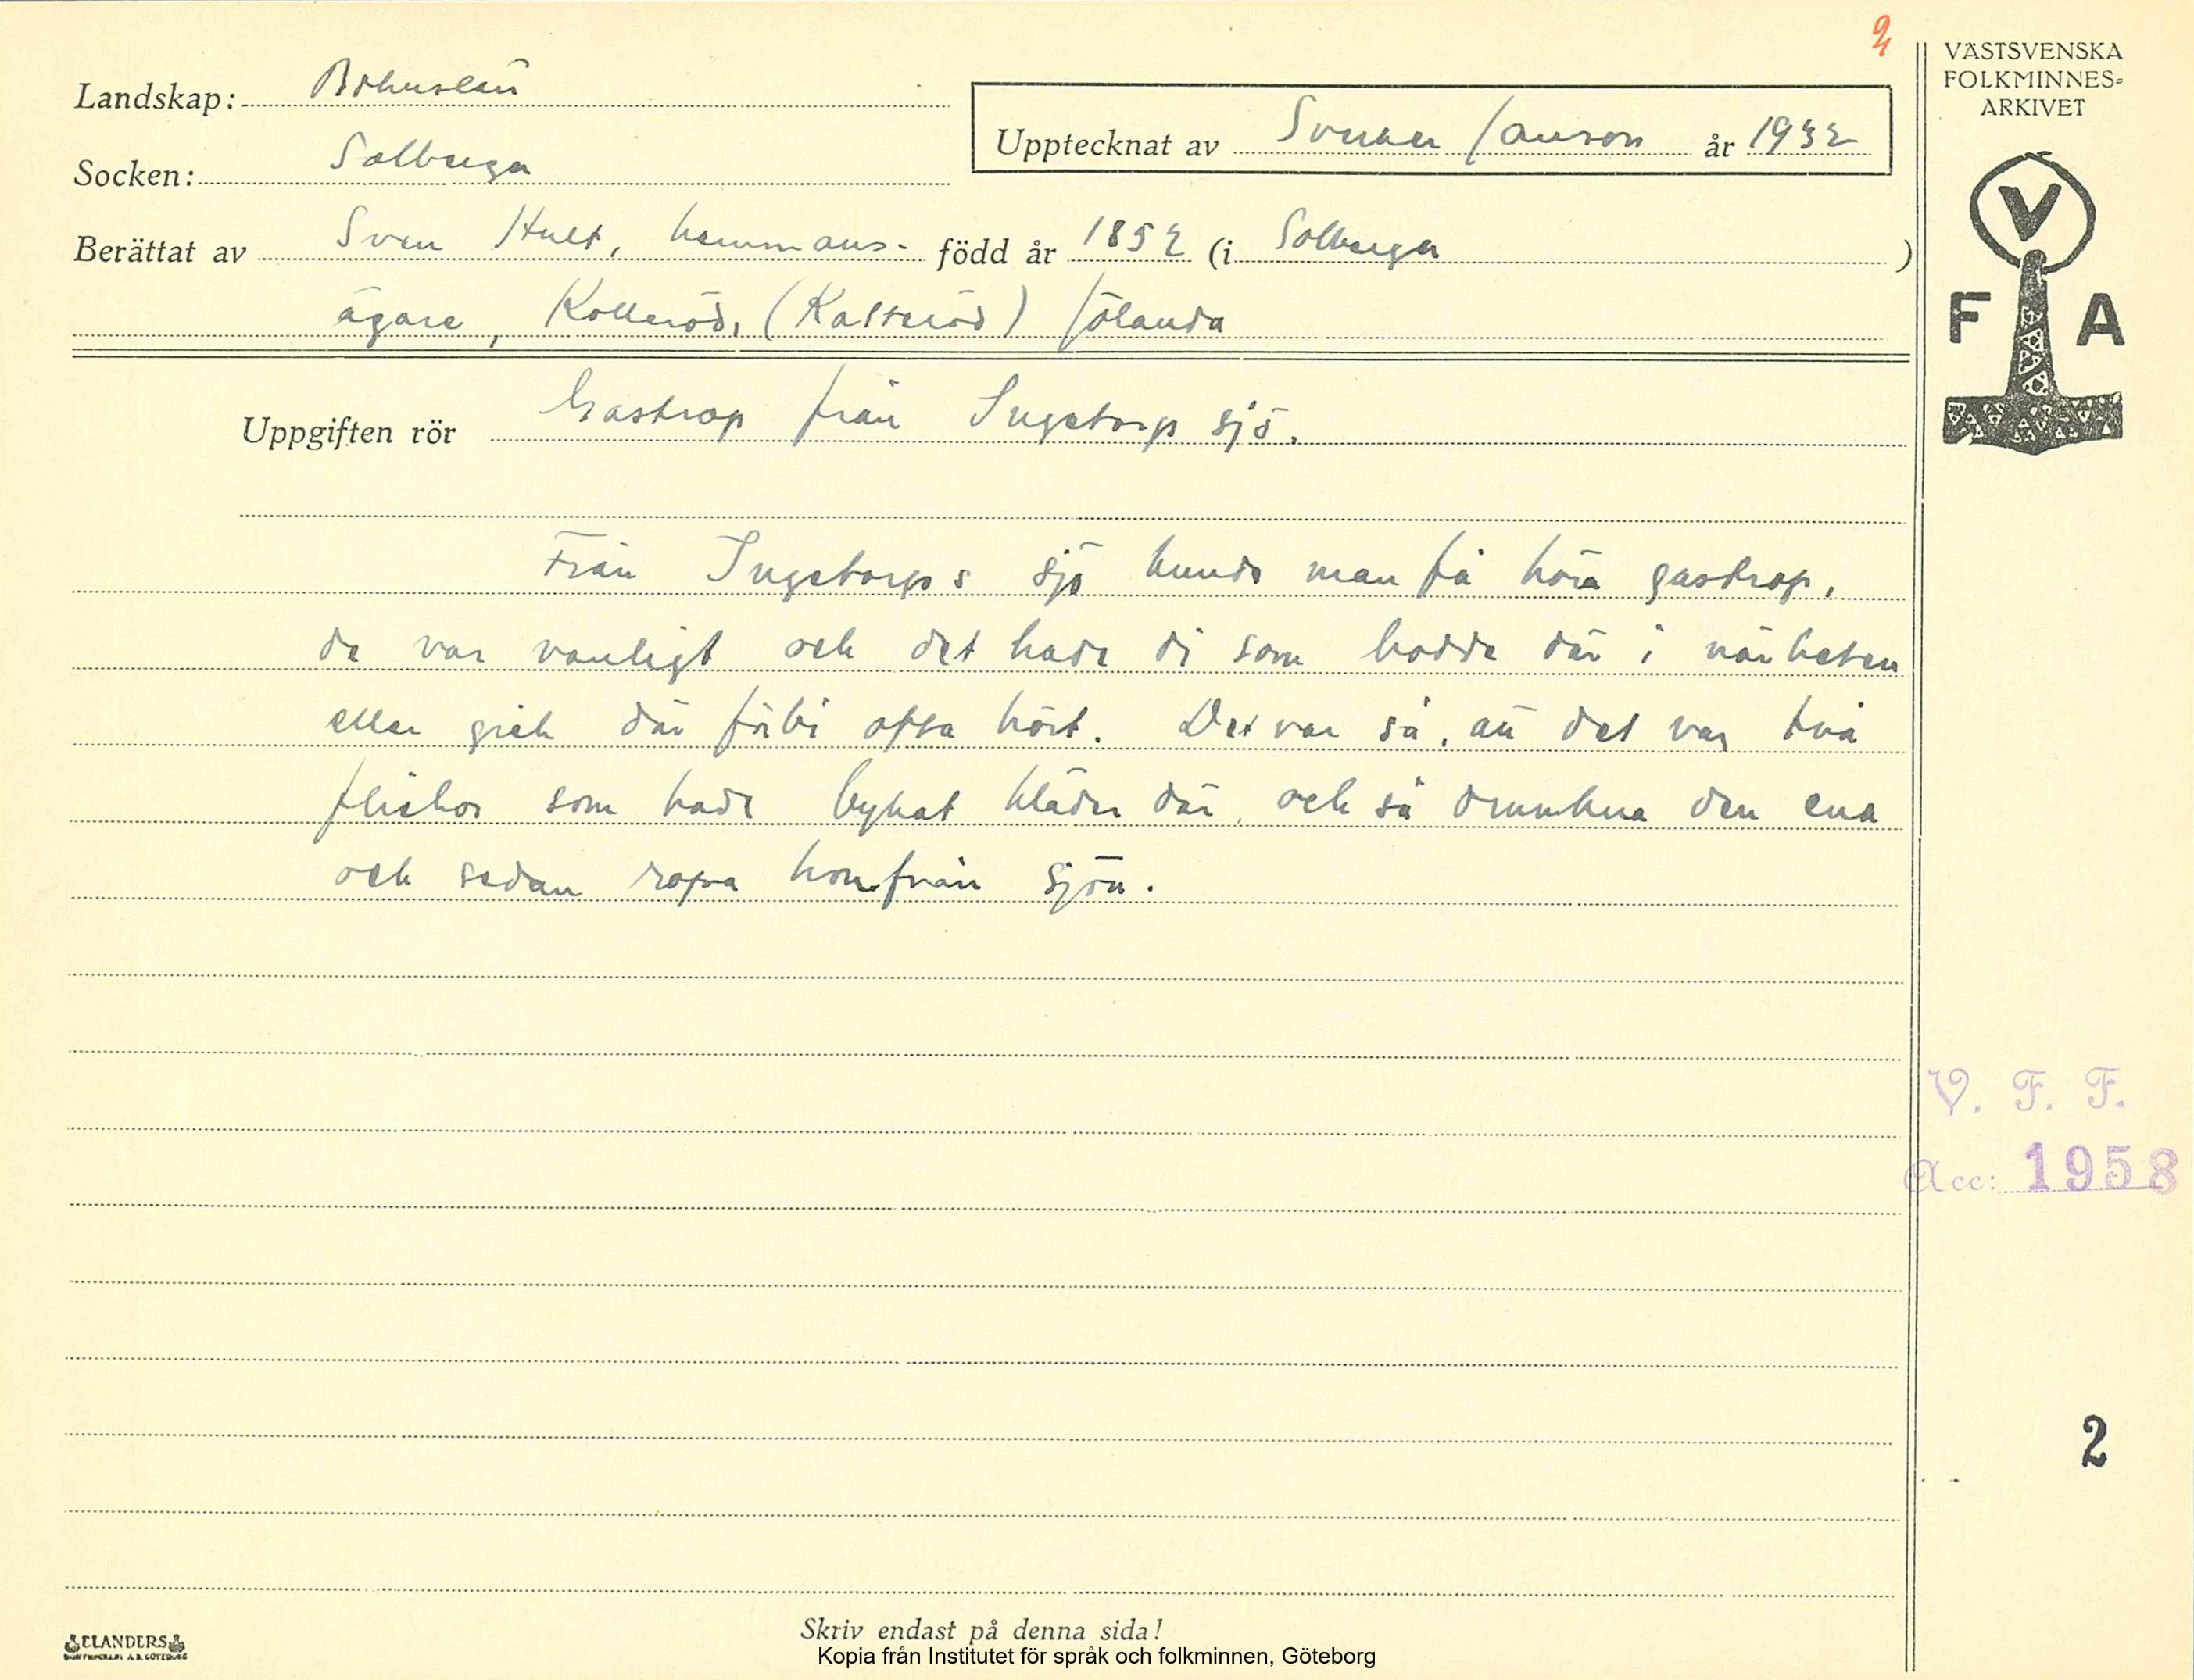 2
VÄSTSVENSKA
FOLKMINNES=
ARKIVET
Landskap: Bohuslän
Upptecknat av Sverker Janson år 1932
Socken: Solberga
Berättat av Sven Hult, hemmans- född år 1852 (i Solberga)
ägare, Kolleröd, (Kalteröd) Jölanda
V
F A
Uppgiften rör Gastrop från Ingetorps sjö.
Från Ingetorps sjö kunde man få höra gastrop,
de var vanligt och det hade di som bodde där i närheten
eller gick där förbi ofta hört. Det var så, att det var två
flickor som hade bykat kläder där, och så drunkna den ena
och sedan ropa hon från sjön.
V. F. F.
Acc: 1958
2
Skriv endast på denna sida!
ELANDERS
Kopia från Institutet för språk och folkminnen, Göteborg